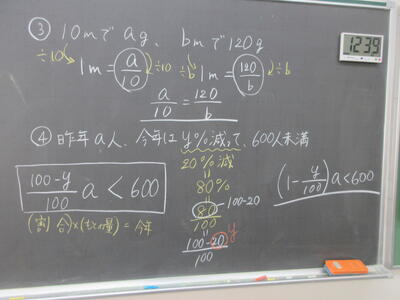 ③ 10mで a g、 bmで120g
÷10 1m = a/10 ÷10 ÷b 1m = 120/b ÷b
a/10 = 120/b
④ 昨年a人、今年はy%減って、600人未満
20%減
=
80%
=
80/100 100-20
=
100-20/100 y
100-y/100 a < 600
(割合)×(もとの量) = 今年
(1-y/100)a<600
12:39